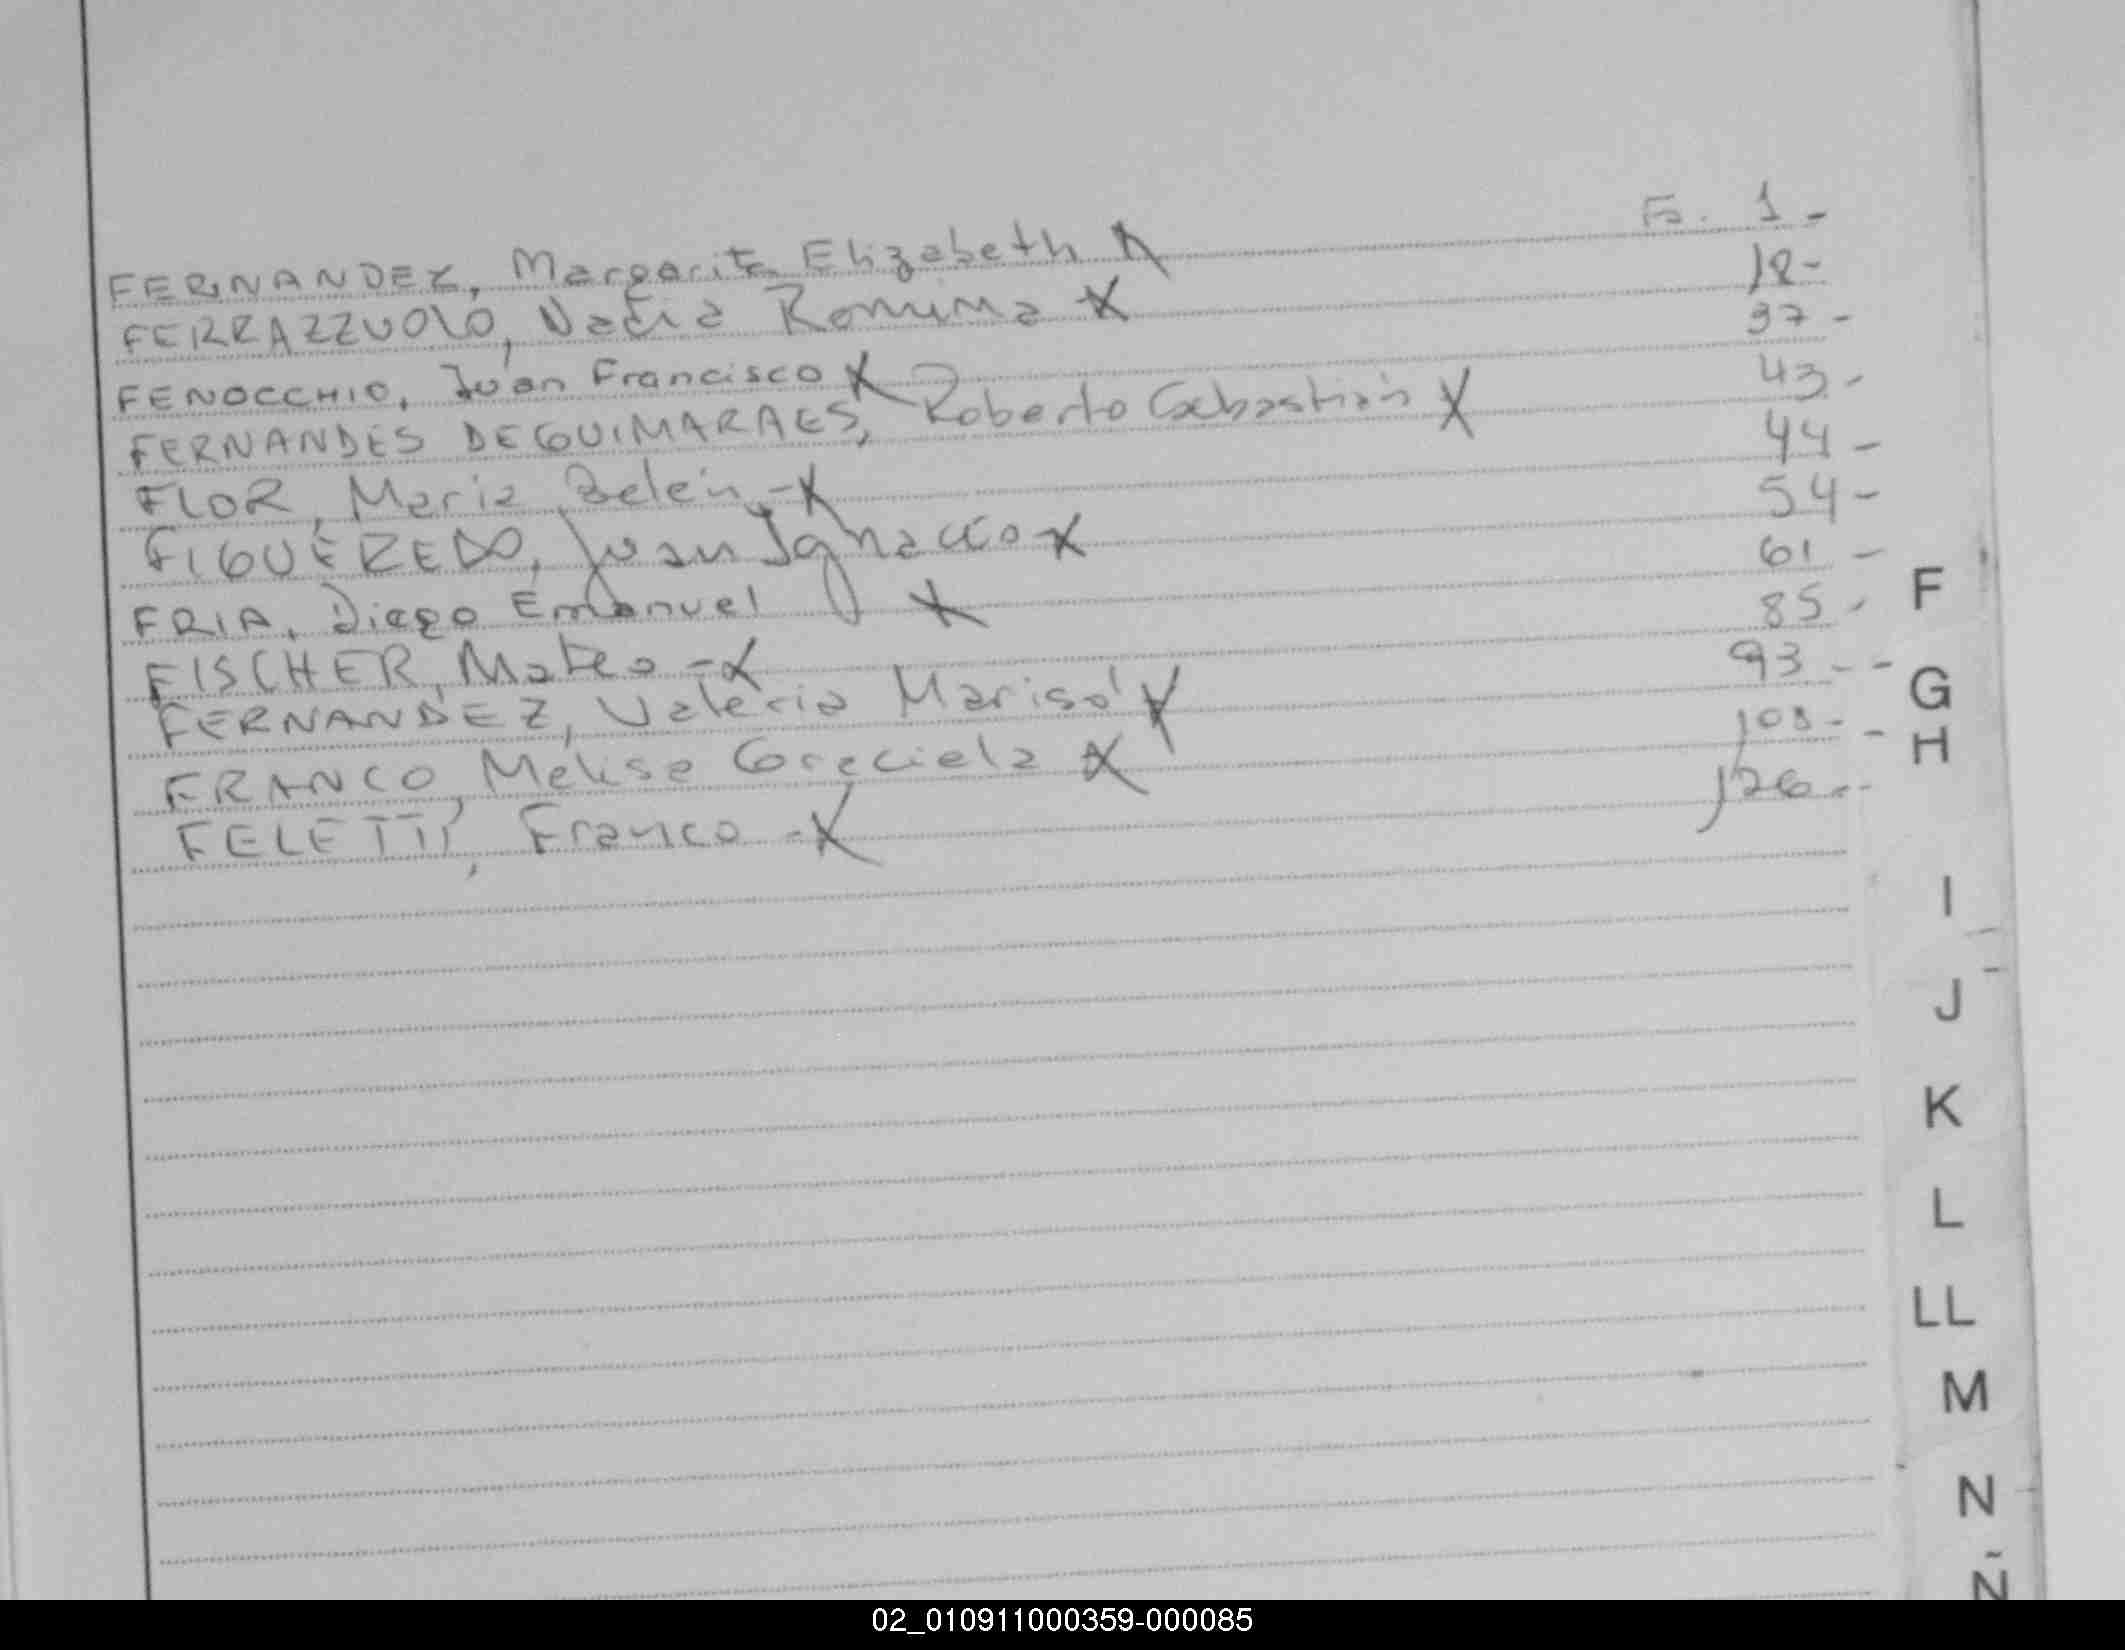 FERNANDEZ, Margarita Elizabeth X Fo. 1 -
FERRAZZUOLO, Nadia Romina X 18 -
FENOCCHIO, Juan Francisco X 37 -
FERNANDES DEGUIMARAES, Roberto Sebastián X 43 -
FLOR, Maria Belén - X 44 -
FIGUEREDO, Juan Ignacio X 54 -
FRIA, Diego Emanuel X 61 -
FISCHER, Mateo - X 85 -
FERNANDEZ, Valeria Marisol X 93 - -
FRANCO, Melisa Graciela X 108 - -
FELETTI, Franco - X 126 - -
F
G
H
I
J
K
L
LL
M
N
Ñ
02_010911000359-000085